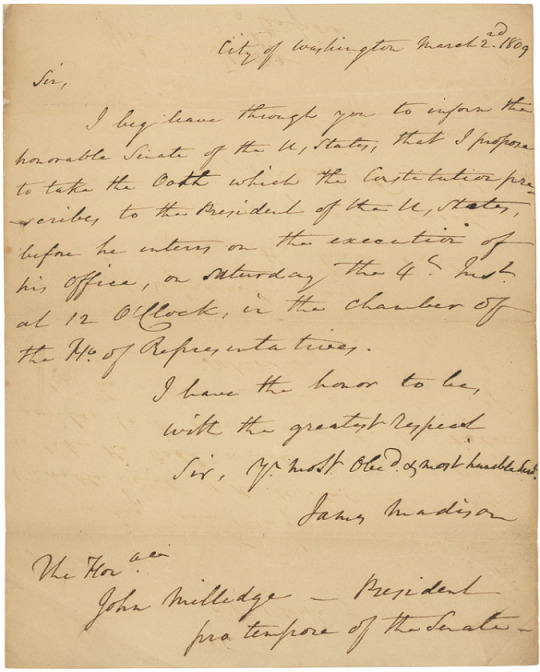 City of Washington March 2nd. 1809
Sir,
I beg leave through you to inform the
honorable Senate of the U, States, that I propose
to take the Oath which the Constitution pre-
-scribes to the President of the U, States,
before he enters on the execution of
his office, on Saturday the 4th. Inst.
at 12 O'Clock, in the chamber of
the Ho. of Representatives.
I have the honor to be,
with the greatest respect
Sir, Yr. most Obed. & most humble Servt.
James Madison
The Honble
John Milledge — President
pro tempore of the Senate —